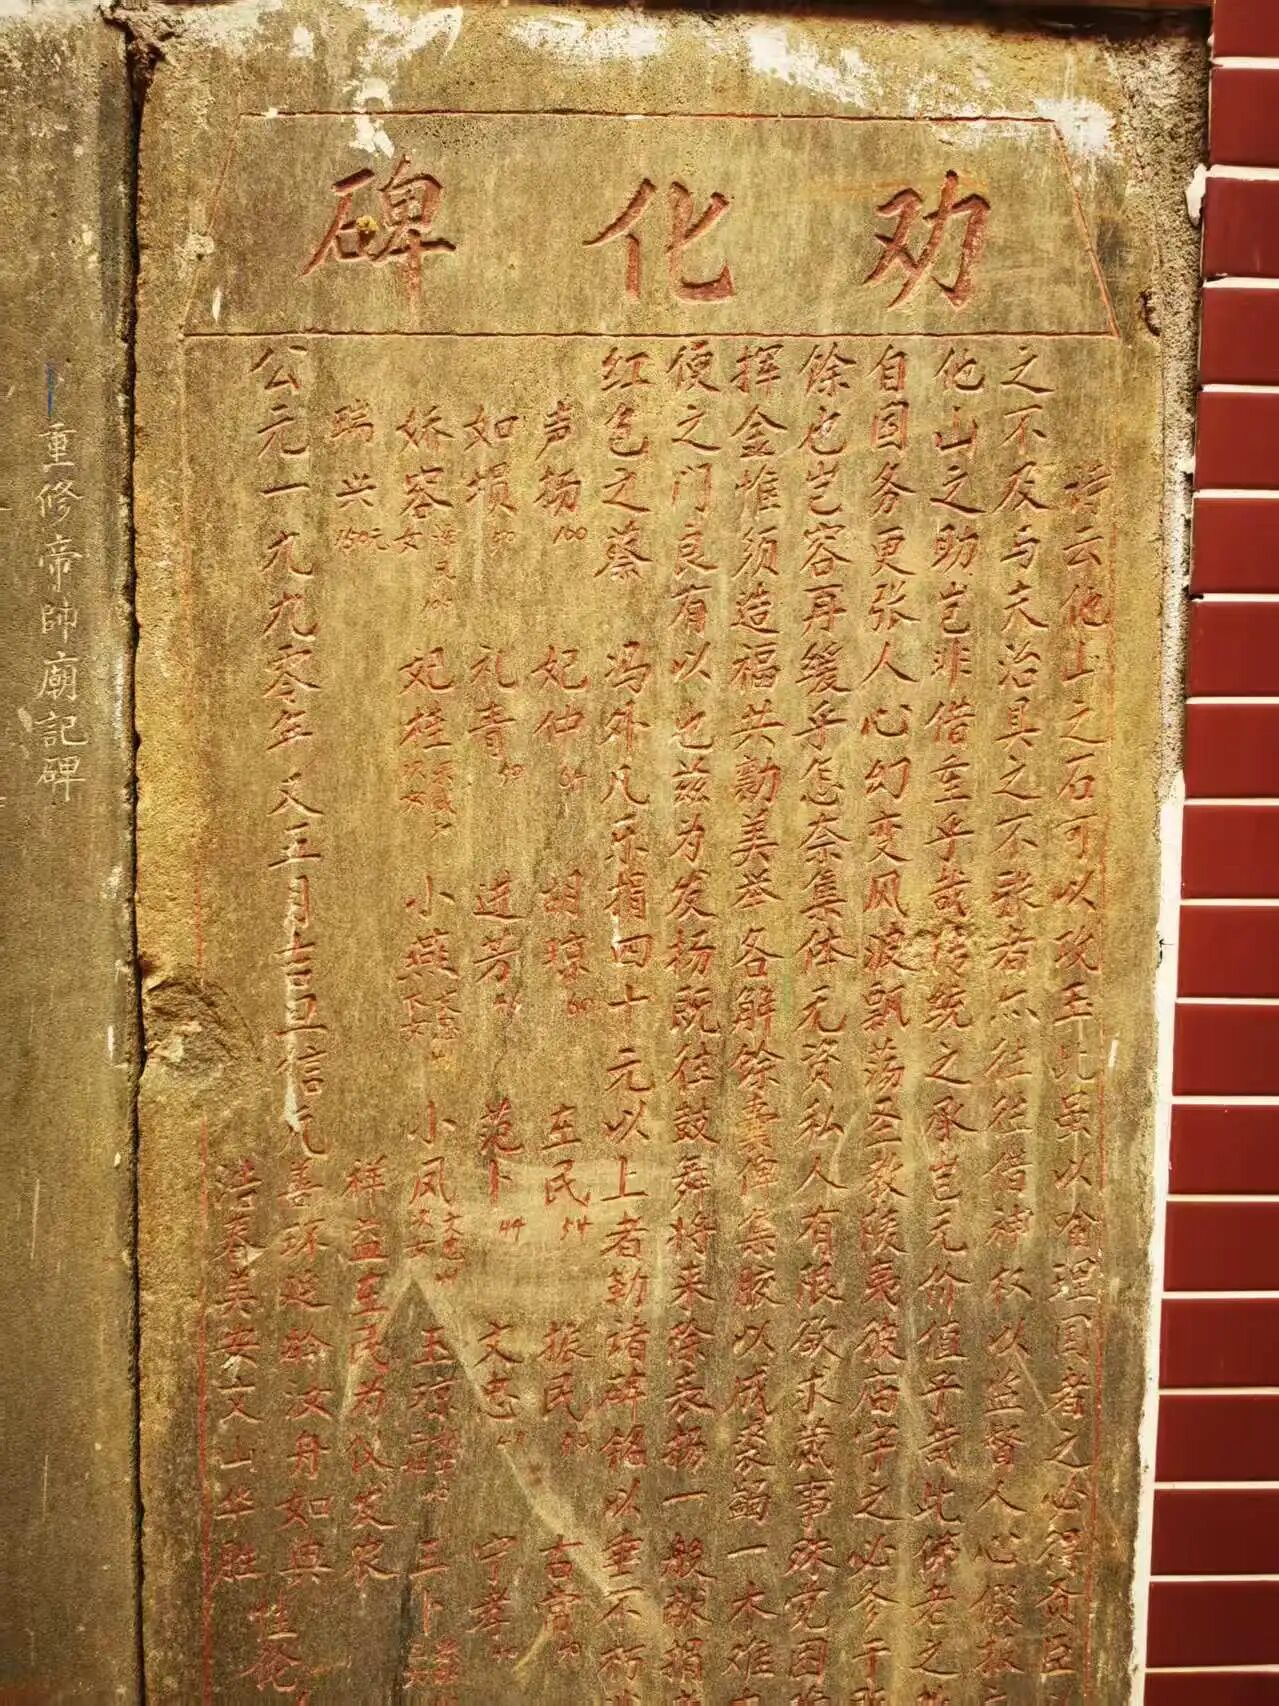 劝化碑
诗云他山之石可以攻玉此虽以喻理国者之必得贤臣
之不及与夫治具之不张者亦往往借神权以益督人心假
他山之助岂非借重乎哉传统之承岂无价值乎哉此佛老之
自国务更张人心幻变风波飘荡圣教陵夷彼庙宇之必多于
馀也岂容再缓乎怎奈集体无资私人有限欲求蒇事殊觉困
挥金惟须造福共勷美举各解馀囊俾集腋以成裘绸一木难
便之门良有以也兹为发扬既往鼓舞将来除表扬一般献捐
红包之蔡冯外凡乐捐四十元以上者勒诸碑铭以垂不朽
声扬100 妃仲 胡琼60 左民54 振民50 古常50
如埙50 礼青50 进芳 范卜44 文志 宁孝
娇容女 妃桂 小燕 小凤 玉琼 三卜
瑞兴150元 祥益至民为仪发农
公元一九九零年又五月吉旦信 善环廷龄汝舟如兴 惟伦
浩春美安文山华胜
重修帝師廟記碑